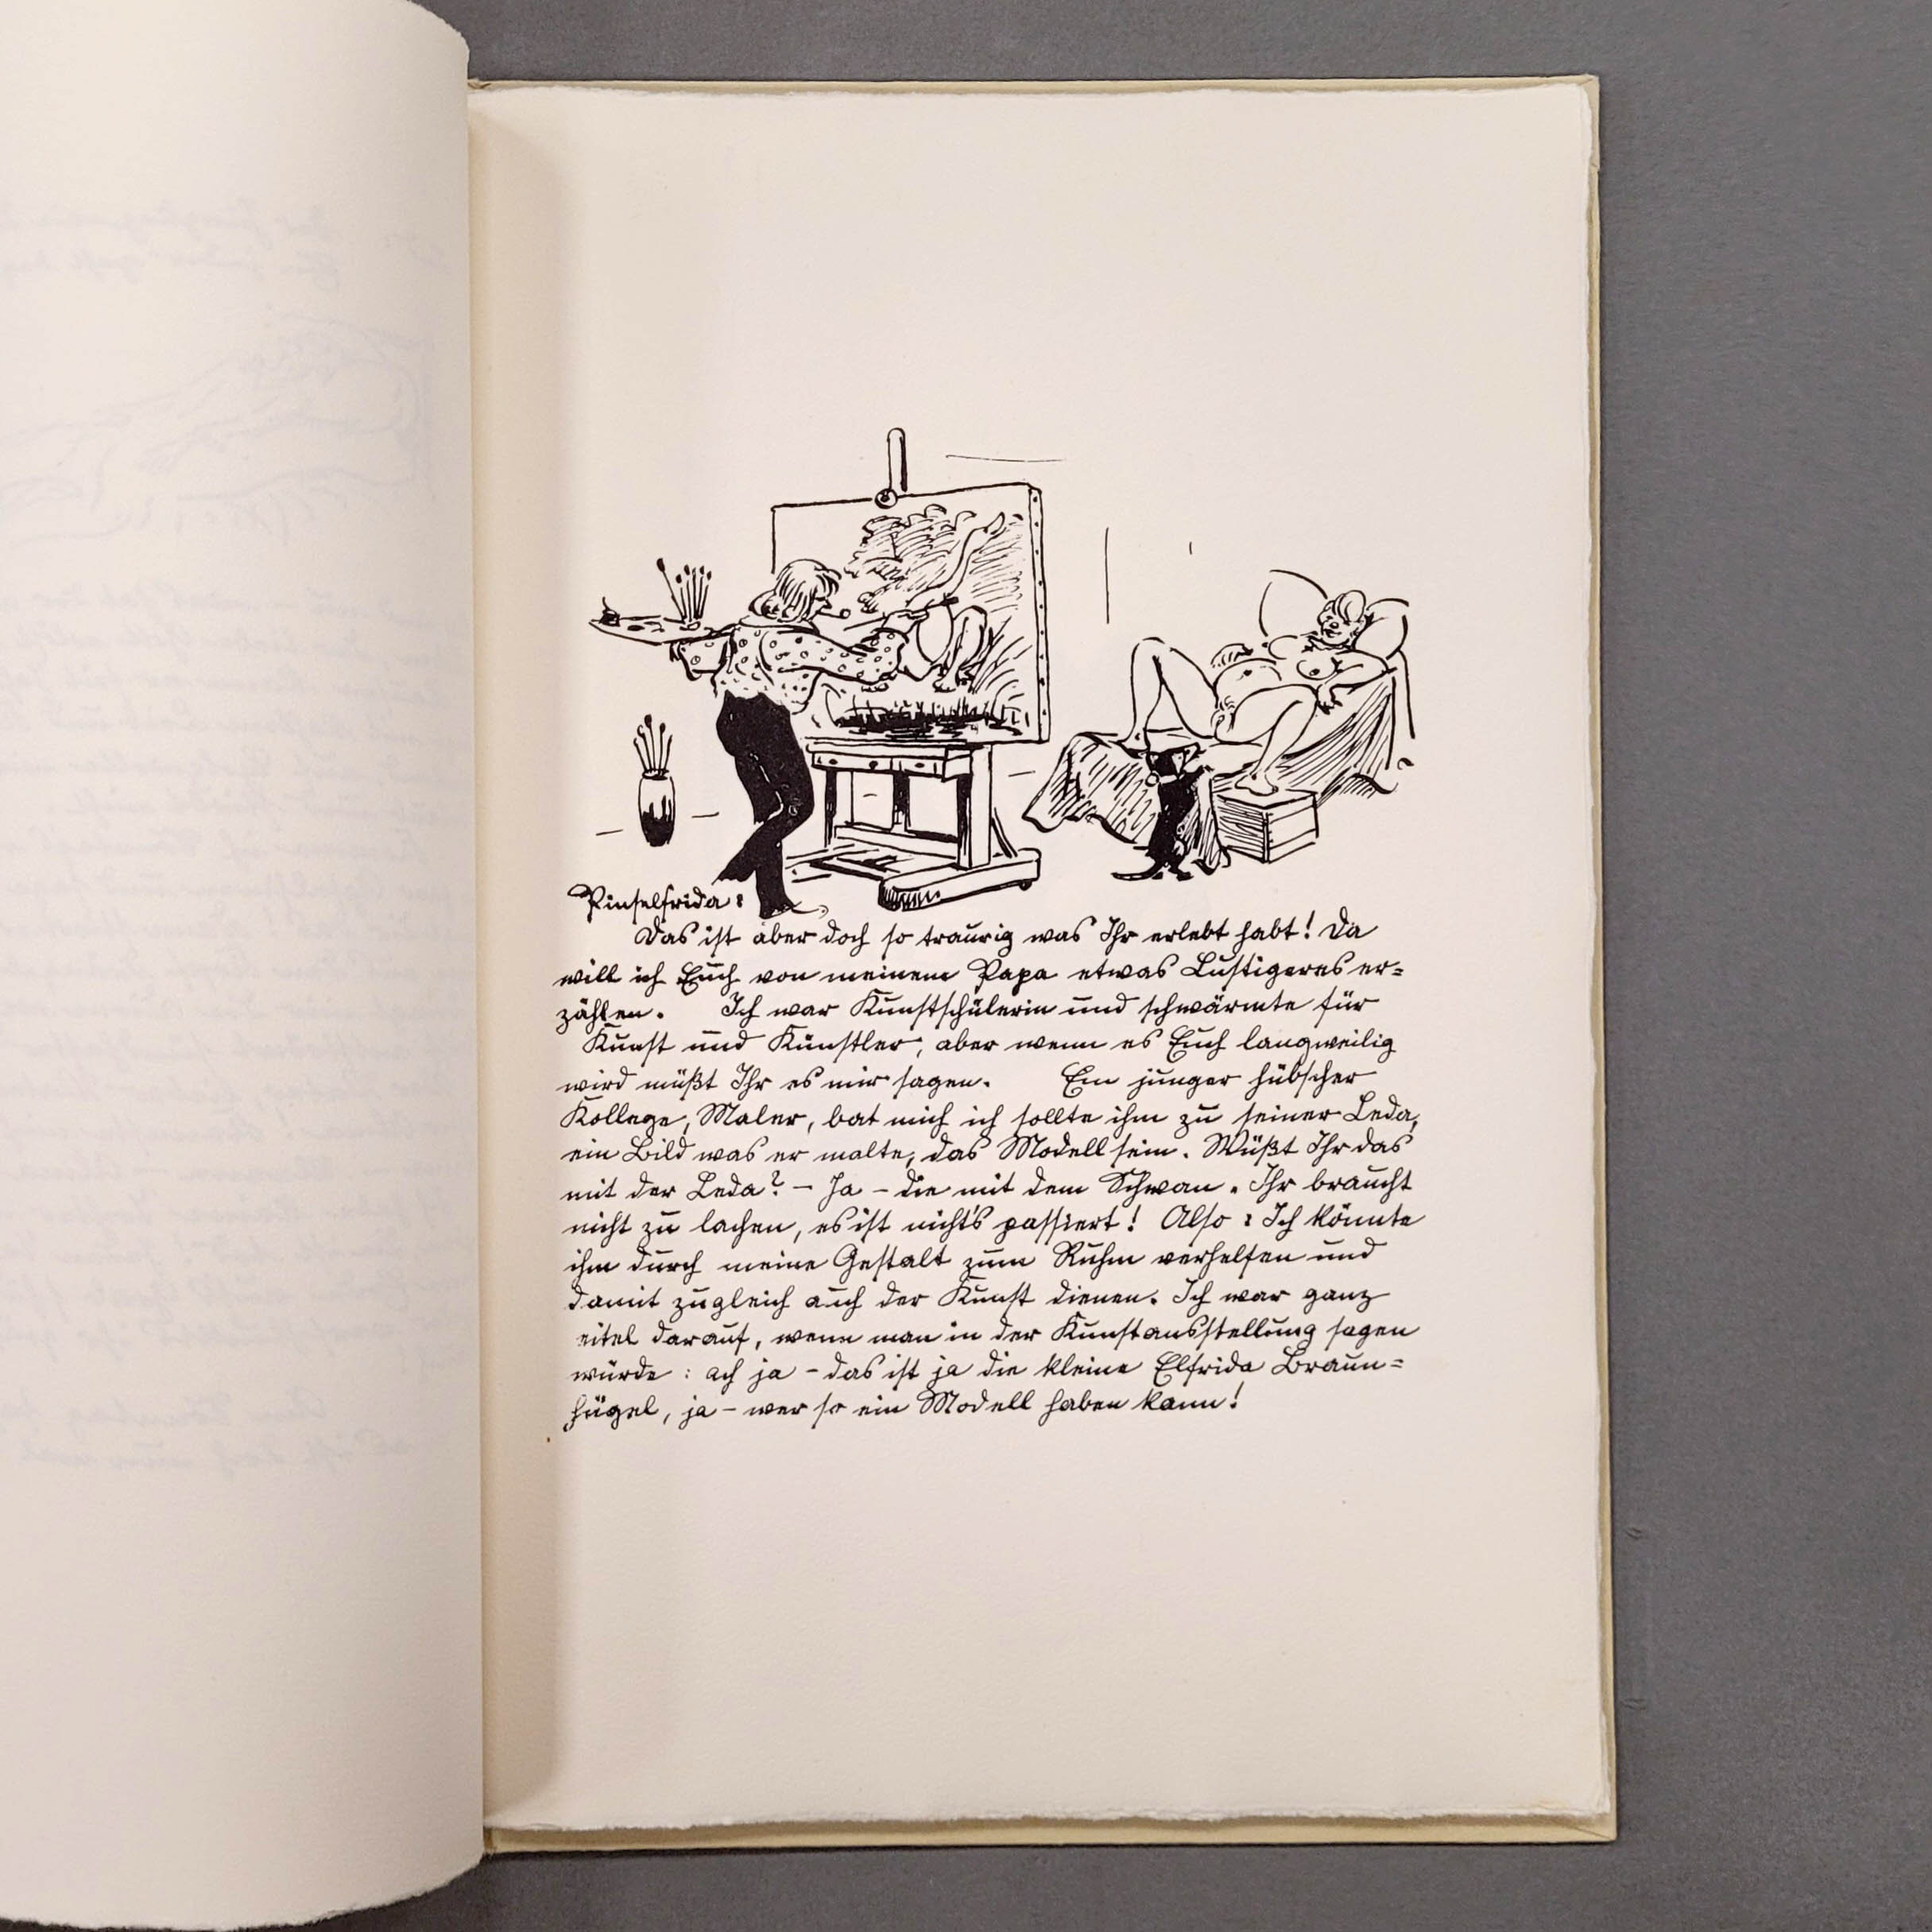 Pinselfrida:
Das ist aber doch so traurig was Ihr erlebt habt! Da
will ich Euch von meinem Papa etwas Lustigeres er=
zählen. Ich war Kunstschülerin und schwärmte für
Kunst und Künstler, aber wenn es Euch langweilig
wird müßt Ihr es mir sagen. Ein junger hübscher
Kollege, Maler, bat mich ich sollte ihm zu seiner Leda,
ein Bild was er malte, das Modell sein. Wüßt Ihr das
mit der Leda? – Ja – die mit dem Schwan. Ihr braucht
nicht zu lachen, es ist nichts passiert! Also: Ich könnte
ihm durch meine Gestalt zum Ruhm verhelfen und
damit zugleich auch der Kunst dienen. Ich war ganz
eitel darauf, wenn man in der Kunstausstellung sagen
würde: ach ja – das ist ja die kleine Elfrida Braun=
hügel, ja – wer so ein Modell haben kann!